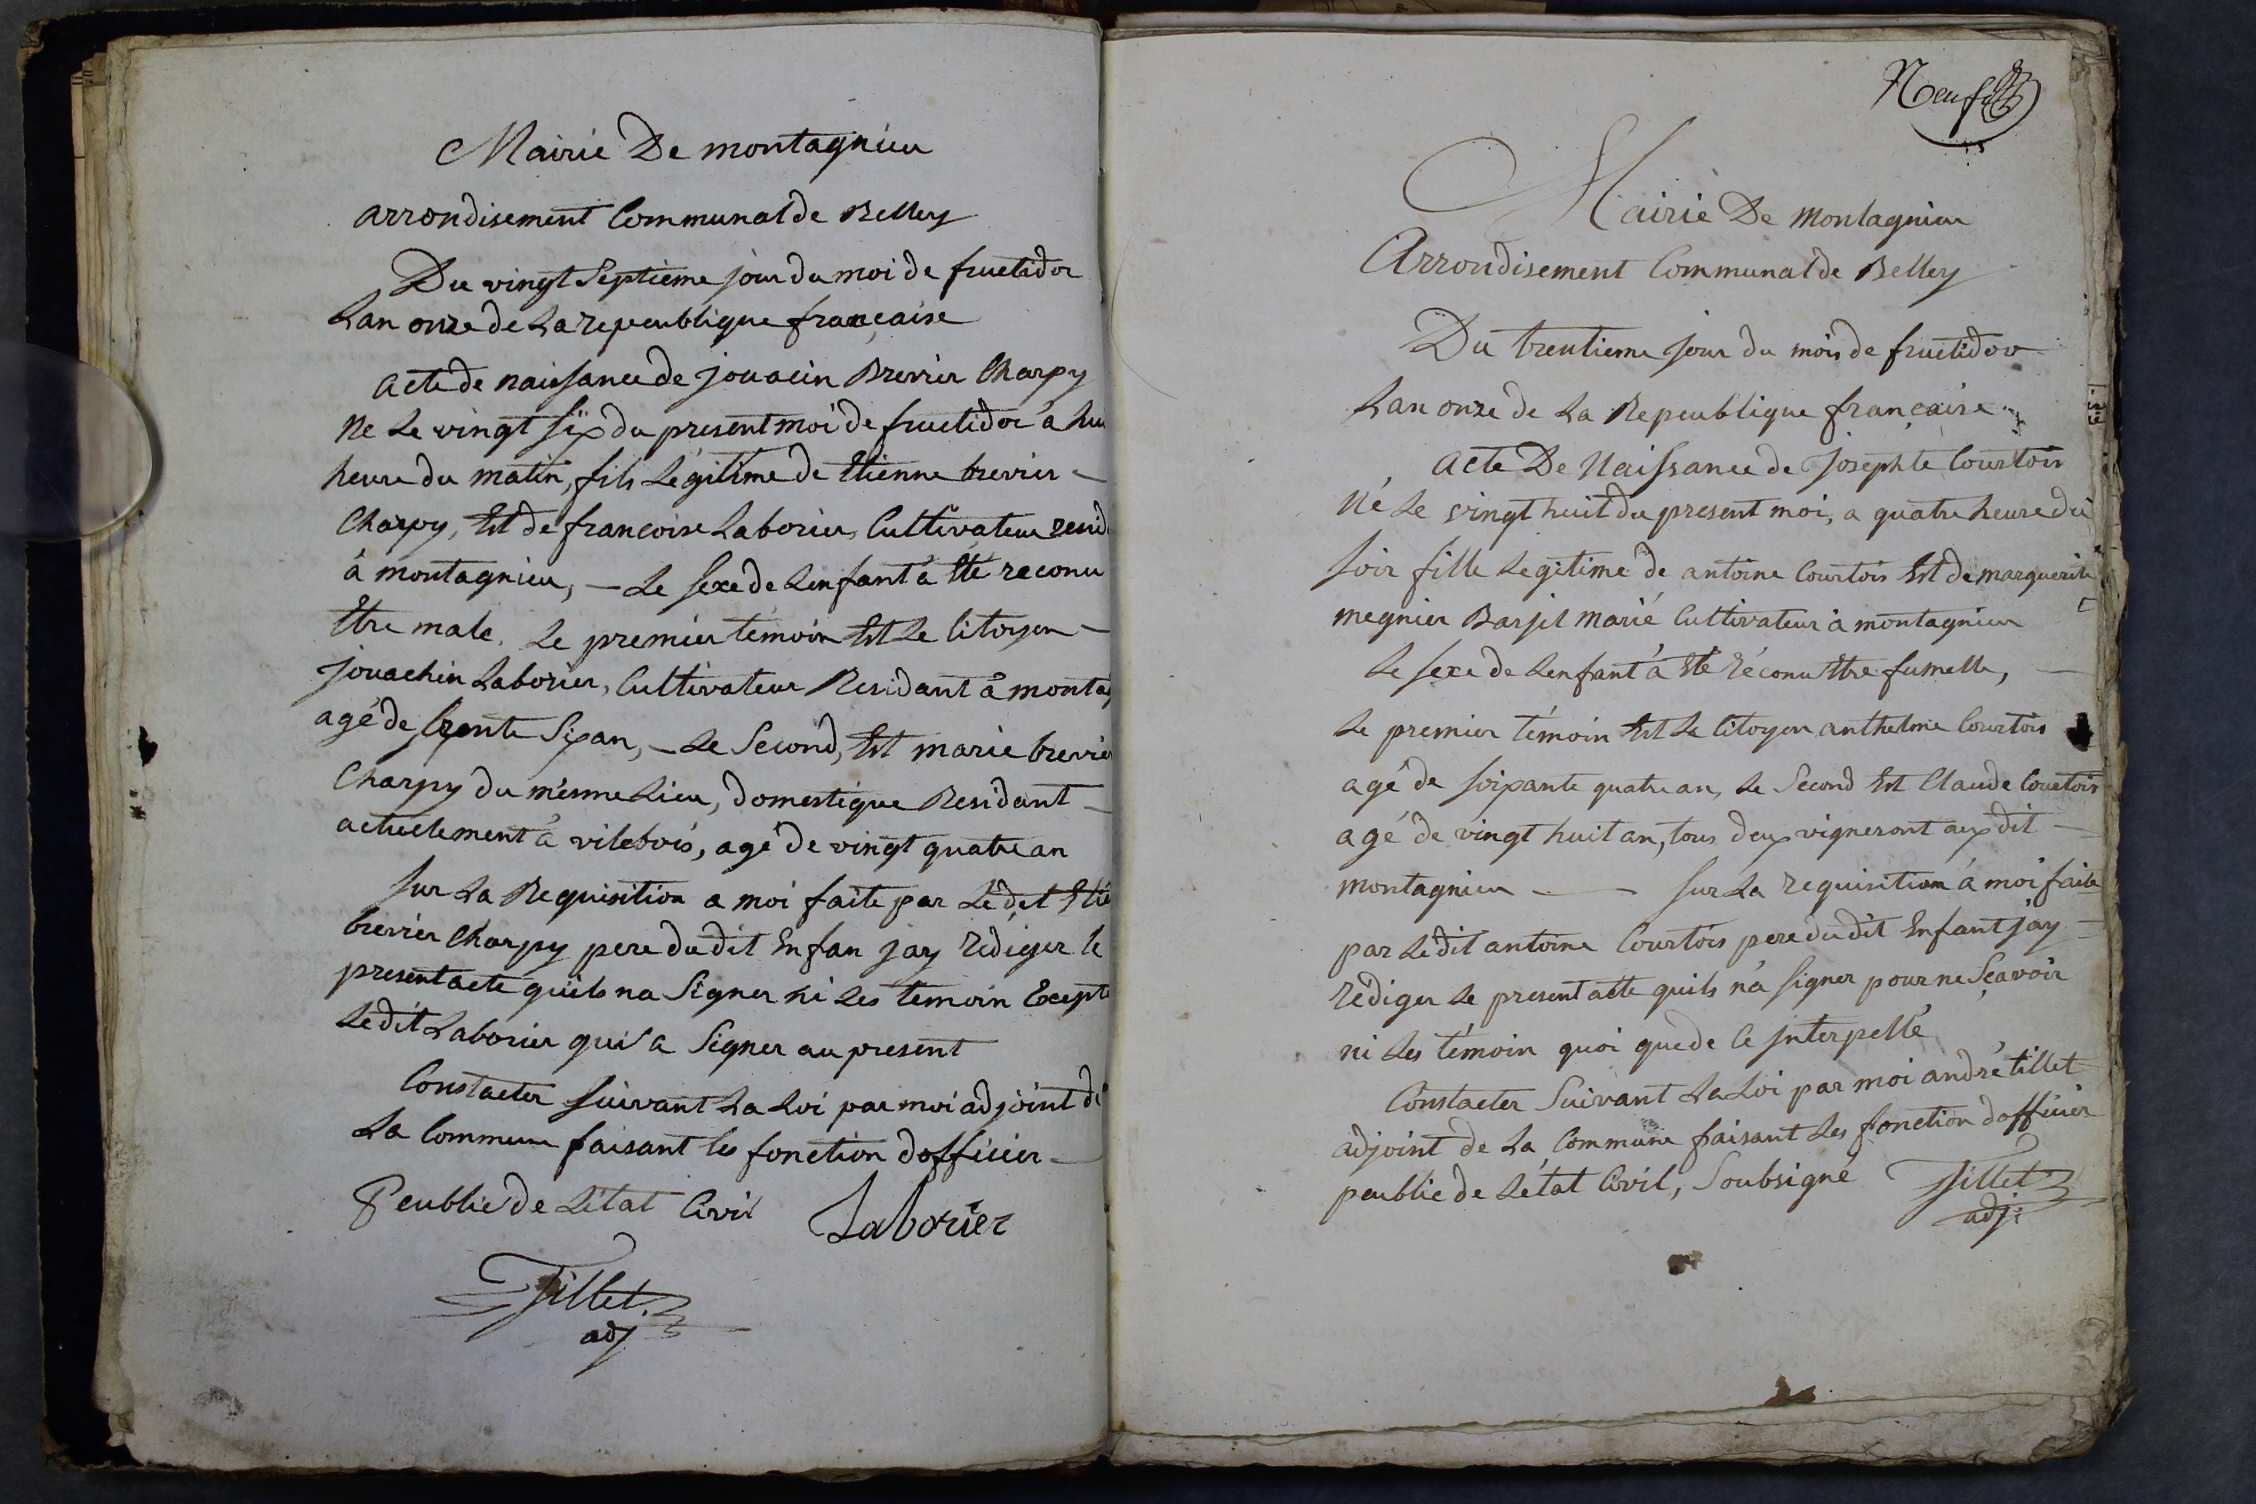 Mairie De montagnieu
arrondisement Communal de Belley
Du vingt Septieme jour du moi de fructidor
Lan onze de La repeublique française
acte de naissance de jouacin Brevier Charpy
Né Le vingt six du present moi de fructidor a hui
heure du matin, fils Légitime de Etienne brevier -
Charpy, Est de francoise Laborier, Cultivateur resid
à montagnieu, - Le sexe de Lenfant à Eté reconu
Etre male. Le premier témoin Est Le Citoyen -
jouachin Laborier, Cultivateur Residant à montag
agé de trente Six an, - Le Second, Est marie brevier
Charpy du mesme Lieu, domestique Residant -
actuelement à vilebois, agé de vingt quatre an
sur La Requisition a moi faite par Le dit Etie
brevier Charpy pere du dit Enfan jay rédiger le
present acte quils na Signer ni Les temoin Excepte
Le dit Laborier qui a Signer au present
Constacter suivant La Loi par moi adjoint de
La Commune faisant les fonction dofficier -
Peublic de Létat Civil Laborier
Tillet
adj
Neuf
Mairie De montagnieu
Arrondisement Communal de Belley
Du trentieme jour du mois de fructidor
Lan onze de La Repeublique française
acte De Naissance de josephte Courtois
Né Le vingt huit du present moi, a quatre heure du
soir fille Legitime de antoine Courtois Est de marguerite
megnier Barjet marié Cultivateur à montagnieu
Le sexe de Lenfant à Eté réconu Etre fumelle,
Le premier témoin Est Le Citoyen anthelme Courtois
agé de soixante quatre an, Le Second Est Claude Courtois
agé de vingt huit an, tous deux vigneront aux dit -
montagnieu - sur La requisition à moi faite
par Le dit antoine Courtois pere du dit Enfant j'ay -
rédiger Le present acte quils n'a signer pour ne Sçavoir
ni Les témoin quoi que de Ce interpellé
Constacter Suivant La Loi par moi andré tillet
adjoint de La Commune faisant Les fonction dofficier
peublic de Létat Civil, Soubsigné Tillet
adj: